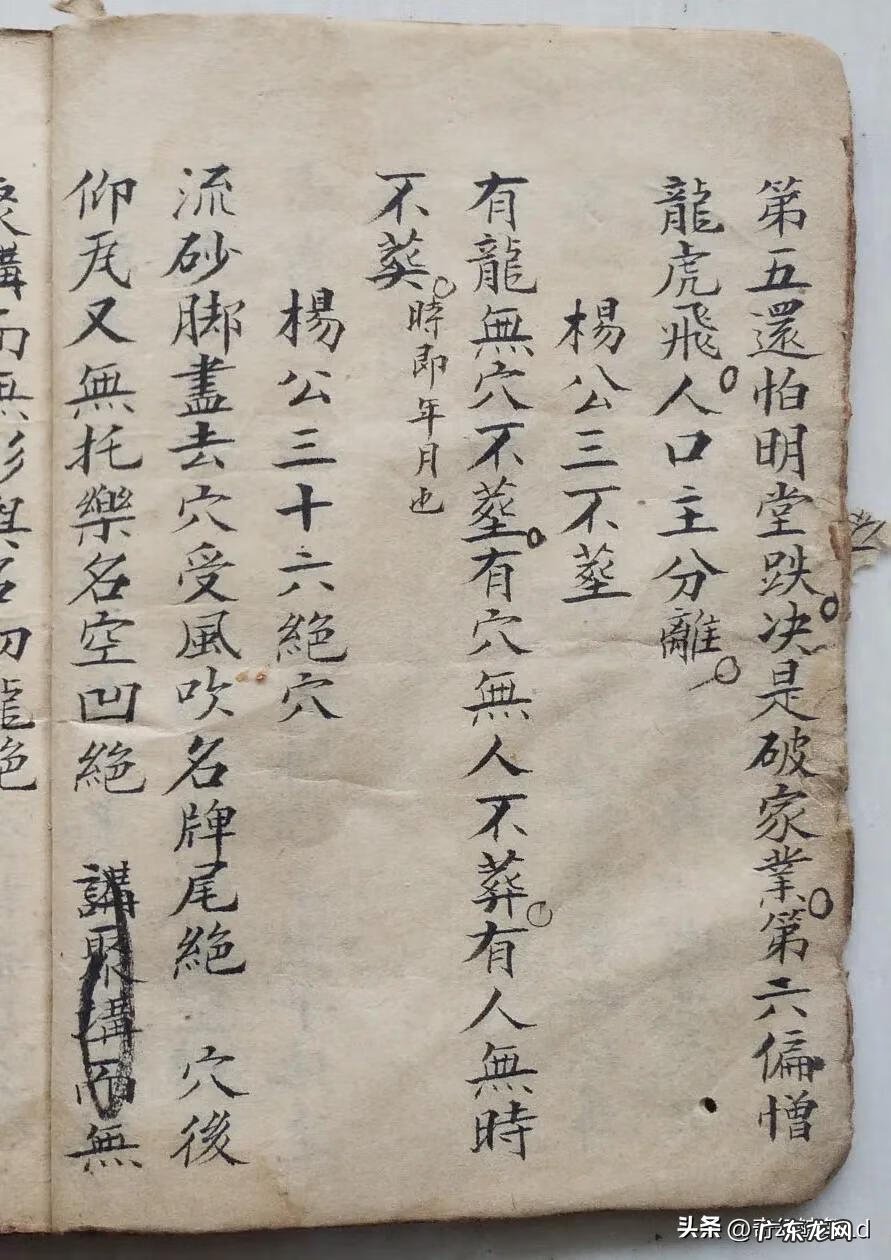 第五還怕明堂跌决是破家業第六偏憎
龍虎飛人口主分離
楊公三不葬
有龍無穴不葬有穴無人不葬有人無時
不葬時即年月也
楊公三十六絕穴
流砂脚盡去穴受風吹名牌尾絕 穴後
仰瓦又無托樂名空凹絕 講聚講而無
頭条 @广东龙网